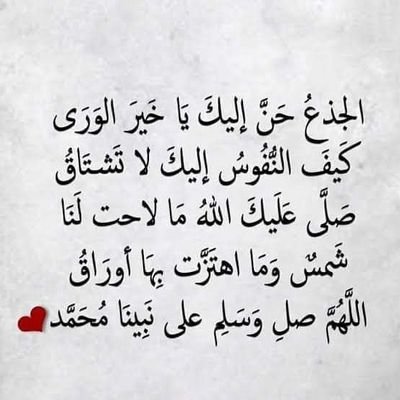 الجذعُ حَنَّ إليكَ يَا خَيرَ الوَرَى
كَيفَ النُّفُوسُ إليكَ لا تَشتَاقُ
صَلَّى عَلَيكَ اللهُ مَا لاحت لَنَا
شَمسٌ وَمَا اهتَزَّت بِهَا أورَاقُ
اللَّهُمَّ صلِ وَسَلِم على نَبِينَا مُحَمَّد